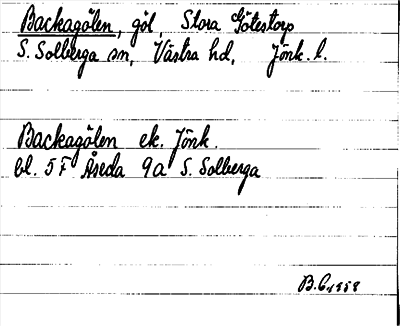 Backagölen, göl, Stora Götestorp
S. Solberga sn, Västra hd, Jönk. l.
Backagölen ek. Jönk.
bl. 5F Åseda 9a S. Solberga